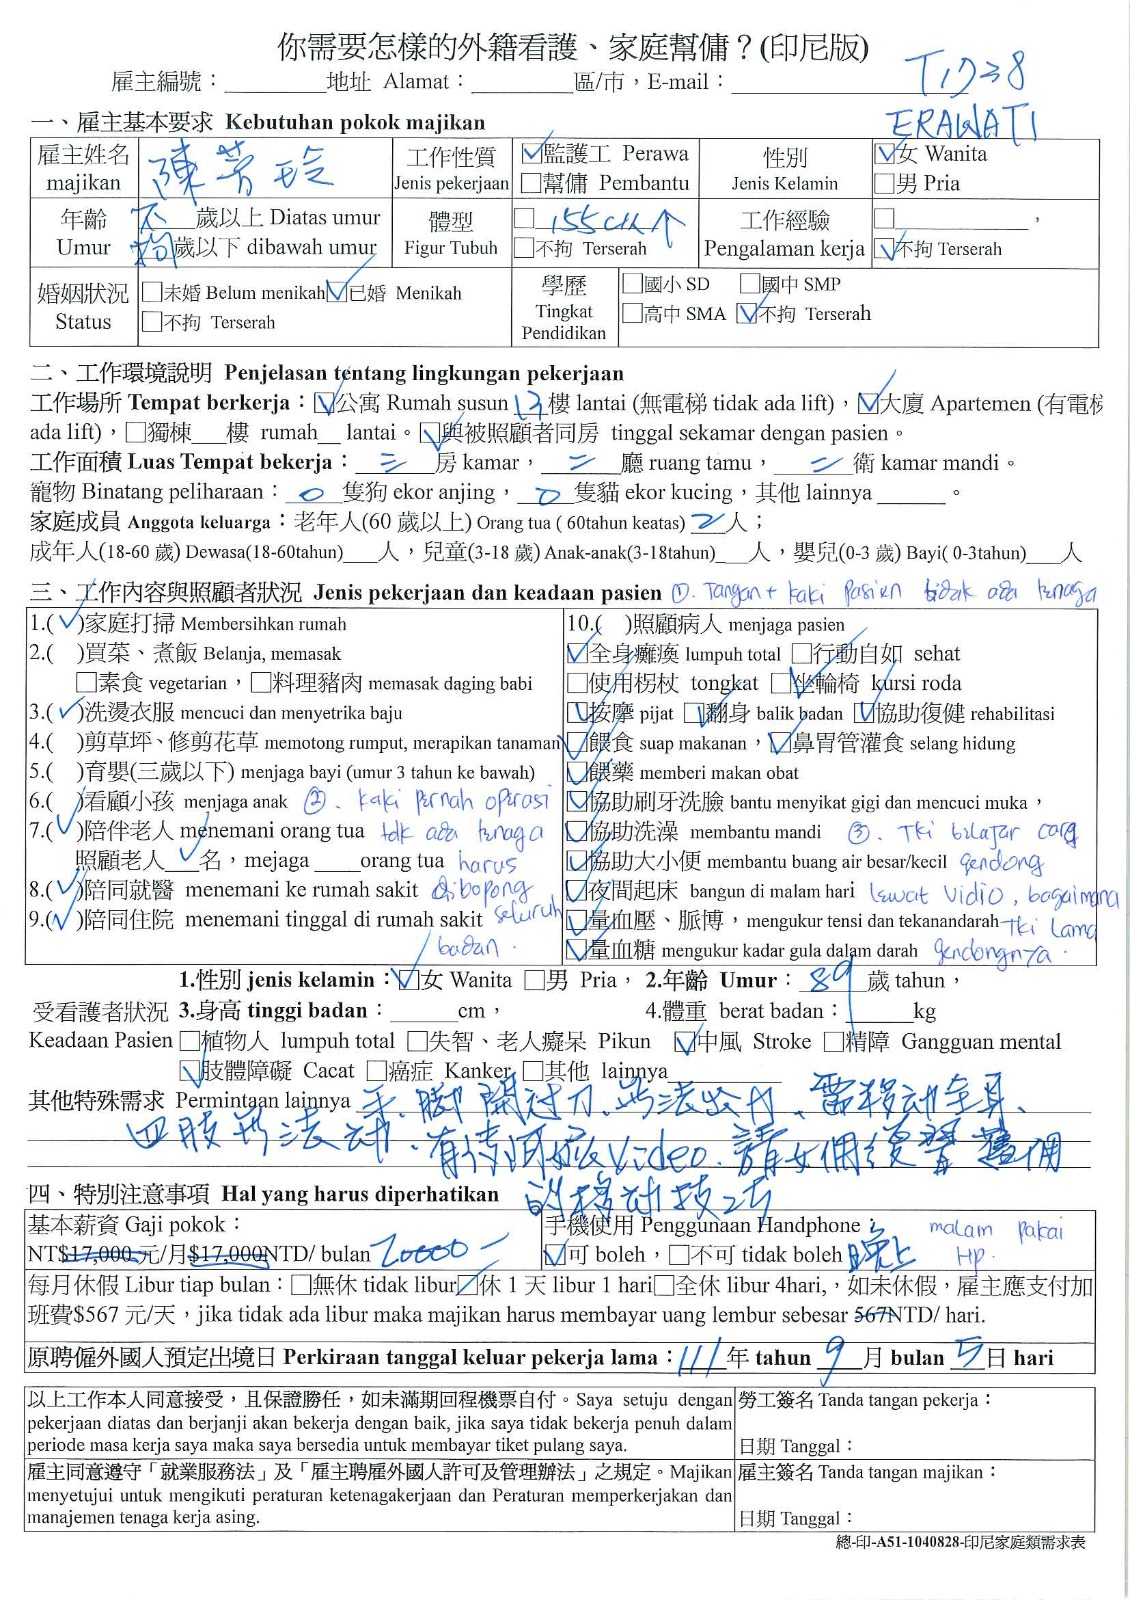 你需要怎樣的外籍看護、家庭幫傭？(印尼版)
雇主編號：________地址 Alamat：________區/市，E-mail：________
ERAWATI
一、雇主基本要求 Kebutuhan pokok majikan
雇主姓名 majikan 陳芳玲 工作性質 Jenis pekerjaan ☑監護工 Perawa □幫傭 Pembantu 性別 Jenis Kelamin ☑女 Wanita □男 Pria
年齡 Umur 不拘 ___歲以上 Diatas umur ___歲以下 dibawah umur 體型 Figur Tubuh □155cm↑ □不拘 Terserah 工作經驗 Pengalaman kerja □________， ☑不拘 Terserah
婚姻狀況 Status □未婚 Belum menikah ☑已婚 Menikah □不拘 Terserah 學歷 Tingkat Pendidikan □國小 SD □國中 SMP □高中 SMA ☑不拘 Terserah
二、工作環境說明 Penjelasan tentang lingkungan pekerjaan
工作場所 Tempat berkerja：☑公寓 Rumah susun 13樓 lantai (無電梯 tidak ada lift)，☑大廈 Apartemen (有電梯
ada lift)，□獨棟___樓 rumah__ lantai。☑與被照顧者同房 tinggal sekamar dengan pasien。
工作面積 Luas Tempat bekerja：三房 kamar，二廳 ruang tamu，二衛 kamar mandi。
寵物 Binatang peliharaan：0隻狗 ekor anjing，0隻貓 ekor kucing，其他 lainnya ______。
家庭成員 Anggota keluarga：老年人(60 歲以上) Orang tua ( 60tahun keatas) 2人；
成年人(18-60 歲) Dewasa(18-60tahun)___人，兒童(3-18 歲) Anak-anak(3-18tahun)___人，嬰兒(0-3 歲) Bayi( 0-3tahun)___人
三、工作內容與照顧者狀況 Jenis pekerjaan dan keadaan pasien ①. Tangan + kaki pasien tidak ada tenaga
1.(✓)家庭打掃 Membersihkan rumah
2.( )買菜、煮飯 Belanja, memasak
□素食 vegetarian，□料理豬肉 memasak daging babi
3.(✓)洗燙衣服 mencuci dan menyetrika baju
4.( )剪草坪、修剪花草 memotong rumput, merapikan tanaman
5.( )育嬰(三歲以下) menjaga bayi (umur 3 tahun ke bawah)
6.( )看顧小孩 menjaga anak ②. kaki pernah operasi
7.(✓)陪伴老人 menemani orang tua tdk ada tenaga
照顧老人✓名，mejaga ____orang tua harus
8.(✓)陪同就醫 menemani ke rumah sakit dibopong
9.(✓)陪同住院 menemani tinggal di rumah sakit seluruh
badan.
10.( )照顧病人 menjaga pasien
☑全身癱瘓 lumpuh total □行動自如 sehat
□使用柺杖 tongkat ☑坐輪椅 kursi roda
☑按摩 pijat ☑翻身 balik badan ☑協助復健 rehabilitasi
☑餵食 suap makanan，☑鼻胃管灌食 selang hidung
☑餵藥 memberi makan obat
☑協助刷牙洗臉 bantu menyikat gigi dan mencuci muka，
☑協助洗澡 membantu mandi ③. Tki belajar cara
☑協助大小便 membantu buang air besar/kecil gendong
☑夜間起床 bangun di malam hari lewat Vidio, bagaimana
☑量血壓、脈博，mengukur tensi dan tekanandarah Tki lama
☑量血糖 mengukur kadar gula dalam darah gendongnya.
1.性別 jenis kelamin：☑女 Wanita □男 Pria，2.年齡 Umur：89歲 tahun，
受看護者狀況 3.身高 tinggi badan：______cm， 4.體重 berat badan：______kg
Keadaan Pasien □植物人 lumpuh total □失智、老人癡呆 Pikun ☑中風 Stroke □精障 Gangguan mental
☑肢體障礙 Cacat □癌症 Kanker □其他 lainnya________
其他特殊需求 Permintaan lainnya 手、腳開過刀、無法出力、需移动全身、
四肢無法动、有 Video、請女傭 舊佣
的移动技巧
四、特別注意事項 Hal yang harus diperhatikan
基本薪資 Gaji pokok：
NT$17,000 元/月$17,000NTD/ bulan 20000-
手機使用 Penggunaan Handphone：
☑可 boleh，□不可 tidak boleh 晚上 malam pakai HP.
每月休假 Libur tiap bulan：□無休 tidak libur☑休 1 天 libur 1 hari□全休 libur 4hari,，如未休假，雇主應支付加
班費$567 元/天，jika tidak ada libur maka majikan harus membayar uang lembur sebesar 567NTD/ hari.
原聘僱外國人預定出境日 Perkiraan tanggal keluar pekerja lama：111年 tahun 9月 bulan 5日 hari
以上工作本人同意接受，且保證勝任，如未滿期回程機票自付。Saya setuju dengan
pekerjaan diatas dan berjanji akan bekerja dengan baik, jika saya tidak bekerja penuh dalam
periode masa kerja saya maka saya bersedia untuk membayar tiket pulang saya.
勞工簽名 Tanda tangan pekerja：
日期 Tanggal：
雇主同意遵守「就業服務法」及「雇主聘雇外國人許可及管理辦法」之規定。Majikan
menyetujui untuk mengikuti peraturan ketenagakerjaan dan Peraturan memperkerjakan dan
manajemen tenaga kerja asing.
雇主簽名 Tanda tangan majikan：
日期 Tanggal：
總-印-A51-1040828-印尼家庭類需求表